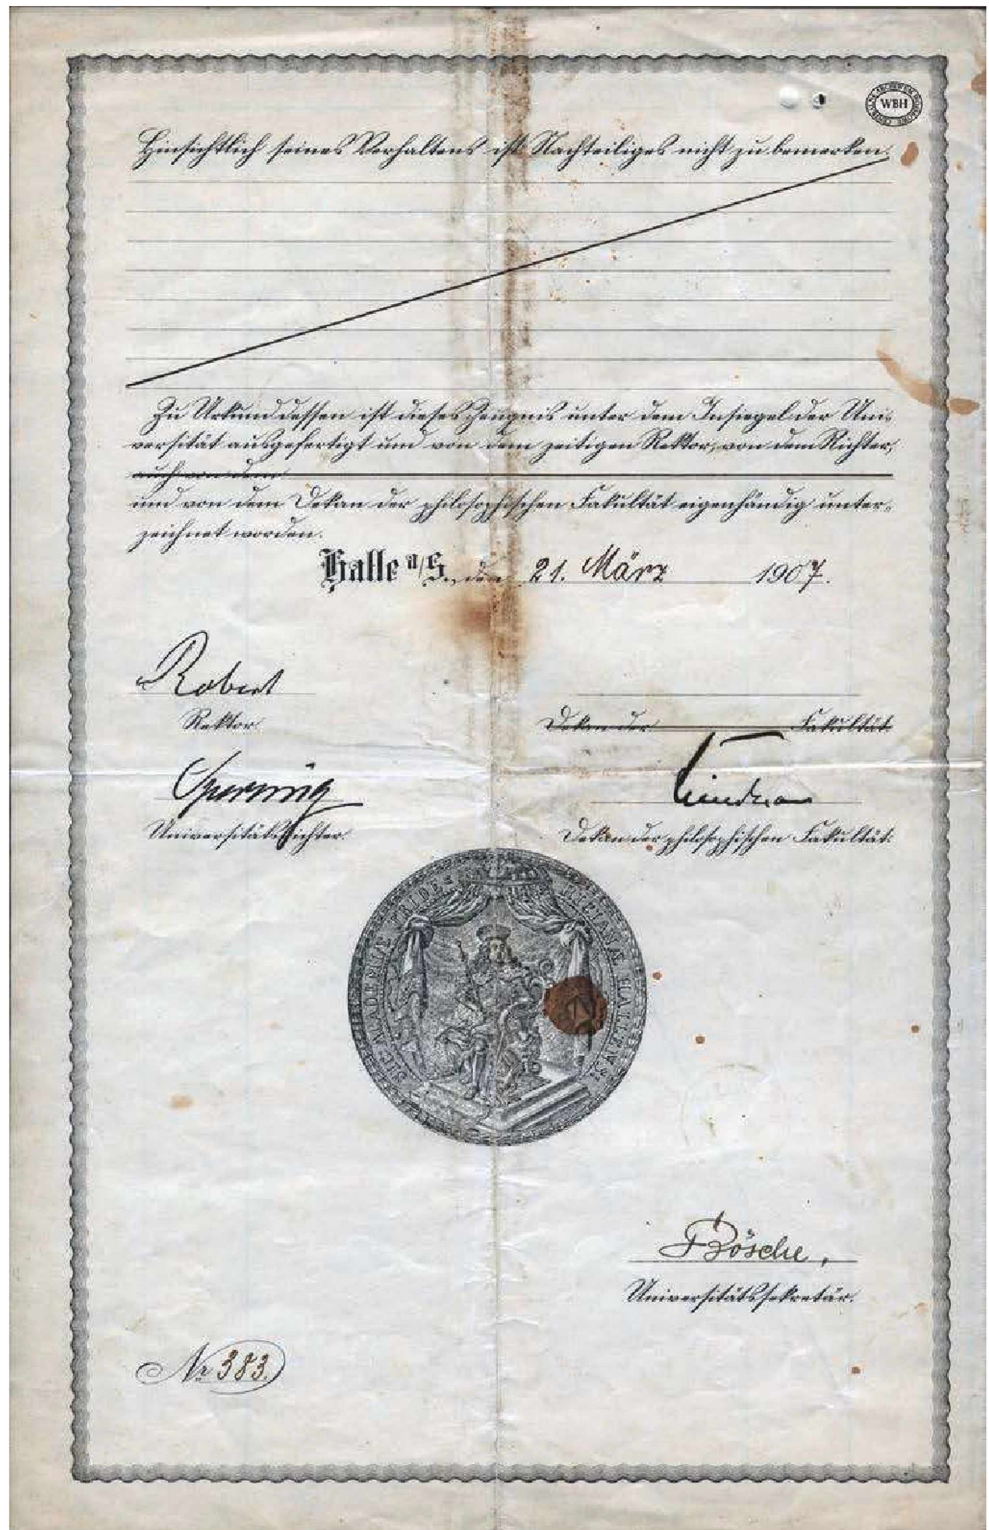 WBH
Hinsichtlich seines Verhaltens ist Nachteiliges nicht zu bemerken.
Zu Urkund dessen ist dieses Zeugnis unter dem Insiegel der Uni-
versität ausgefertigt und von dem zeitigen Rektor, von dem Richter,
auch von dem
und von dem Dekan der philosophischen Fakultät eigenhändig unter-
zeichnet worden.
Halle a/S., den 21. März 1907.
Robert
Rektor.
Dekan der Fakultät.
Universitäts Richter.
Dekan der philosophischen Fakultät.
Bösche,
Universitätssekretär.
Nr 383.